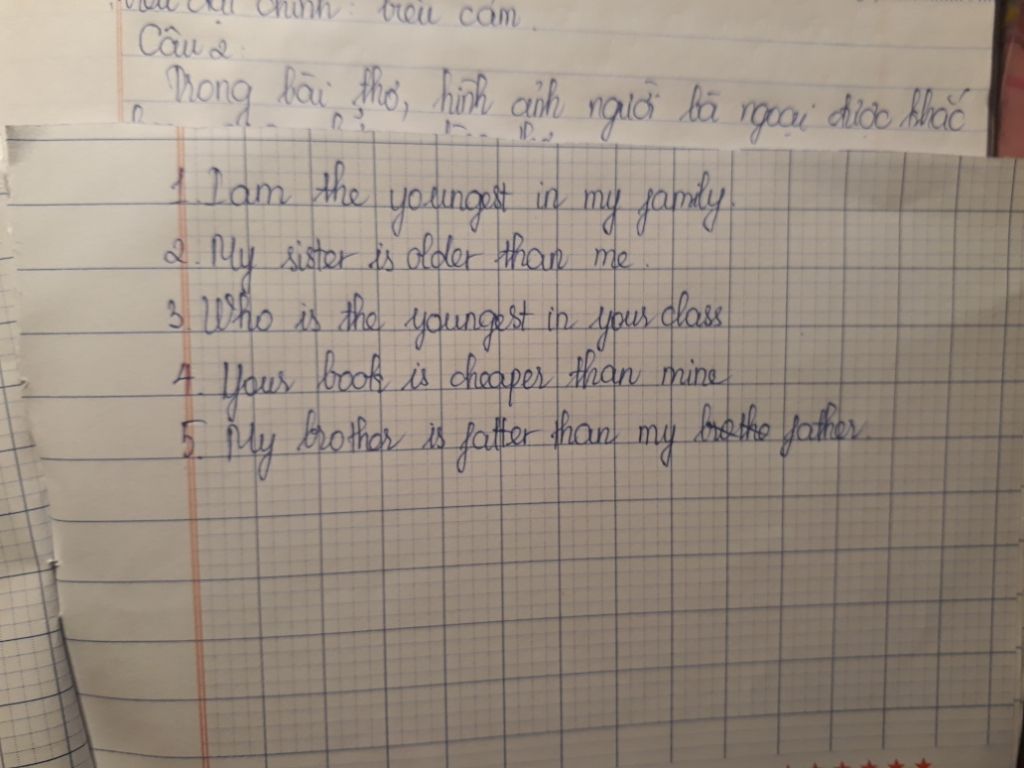 chính: biểu cảm.
Câu 2:
Trong bài thơ, hình ảnh người bà ngoại được khắc
1. I am the youngest in my family.
2. My sister is older than me.
3. Who is the youngest in your class
4. Your book is cheaper than mine
5. My brother is fatter than my brothe father.